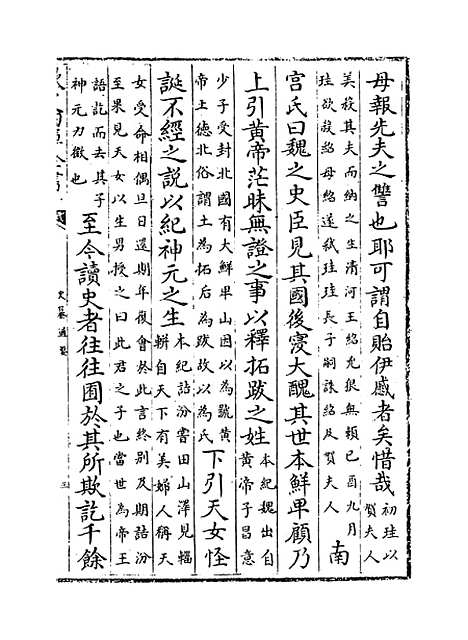 母報先夫之讐也耶可謂自貽伊慼者矣惜哉
初珪以
賀夫人
美殺其夫而納之生清河王紹兇狠無賴已酉九月
珪欲殺紹母紹遂弑珪珪長子嗣誅紹及賀夫人
南
宫氏曰魏之史臣見其國後寖大醜其世本鮮卑顧乃
上引黄帝茫昧無證之事以釋拓跋之姓
本紀魏出自
黄帝子昌意
少子受封北國有大鮮卑山因以為號黄
帝土德北俗謂土為拓后為跋故以為氏
下引天女怪
誕不經之說以紀神元之生
本紀詰汾嘗田山澤見輜
軿自天下有美婦人稱天
女受命相偶旦日還期年復會於此言終别及期詰汾
至果見天女以生男授之曰此君之子也當世為帝王
語訖而去其子
神元力微也
至今讀史者往往囿於其所欺訖千餘
史纂通要
三